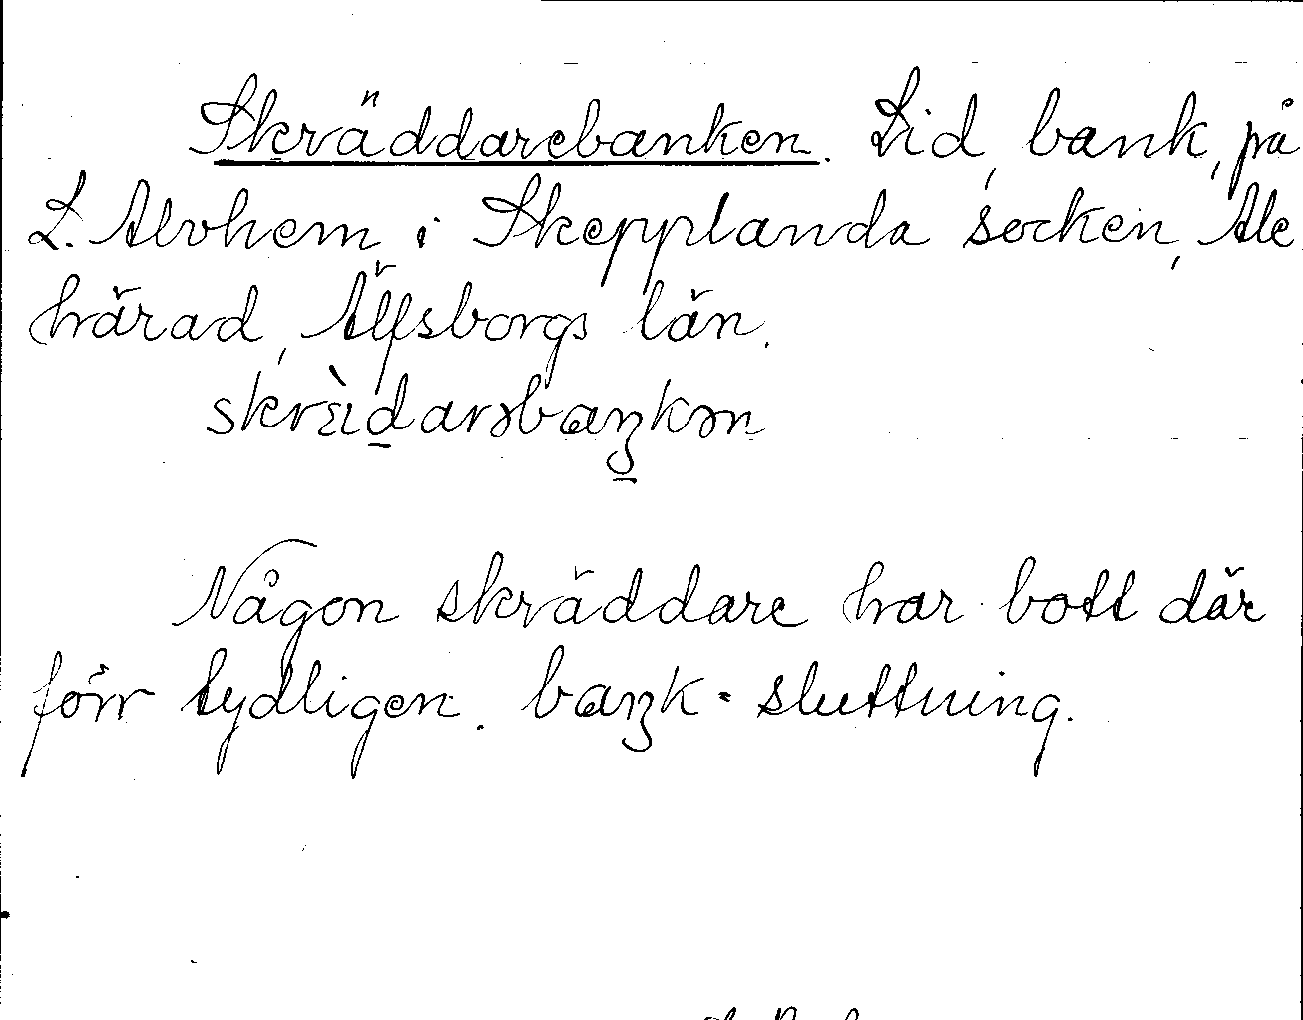 Skräddarebanken. Lid, bank, på
L. Alvhem i Skepplanda socken, Ale
härad, Älfsborgs län.
Någon skräddare har bott där
förr tydligen. baŋk = sluttning.